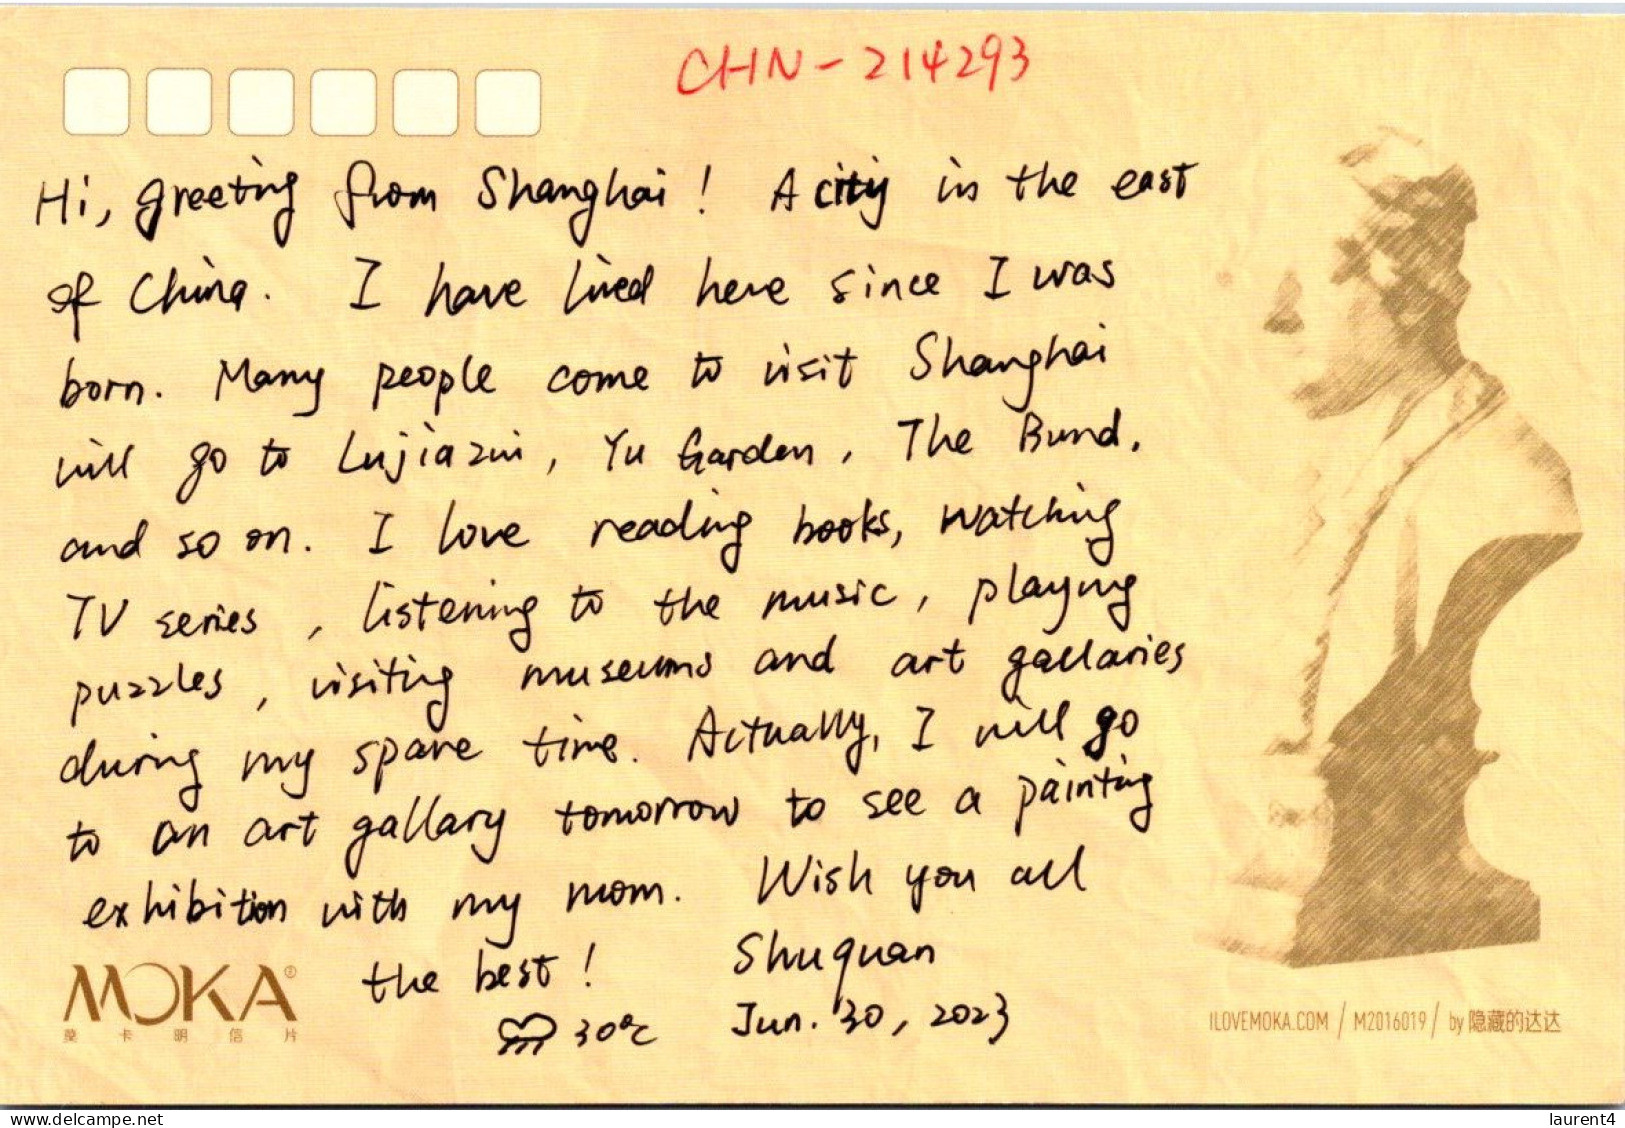 CHN-214293
Hi, greeting from Shanghai! A city in the east
of China. I have lived here since I was
born. Many people come to visit Shanghai
will go to Lujiazui, Yu Garden, The Bund,
and so on. I love reading books, watching
TV series, listening to the music, playing
puzzles, visiting museums and art gallaries
during my spare time. Actually, I will go
to an art gallary tomorrow to see a painting
exhibition with my mom. Wish you all
the best! Shuquan
30℃ Jun. 30, 2023
MOKA®
莫卡明信片
ILOVEMOKA.COM / M2016019 / by 隐藏的达达
www.delcampe.net
laurent4